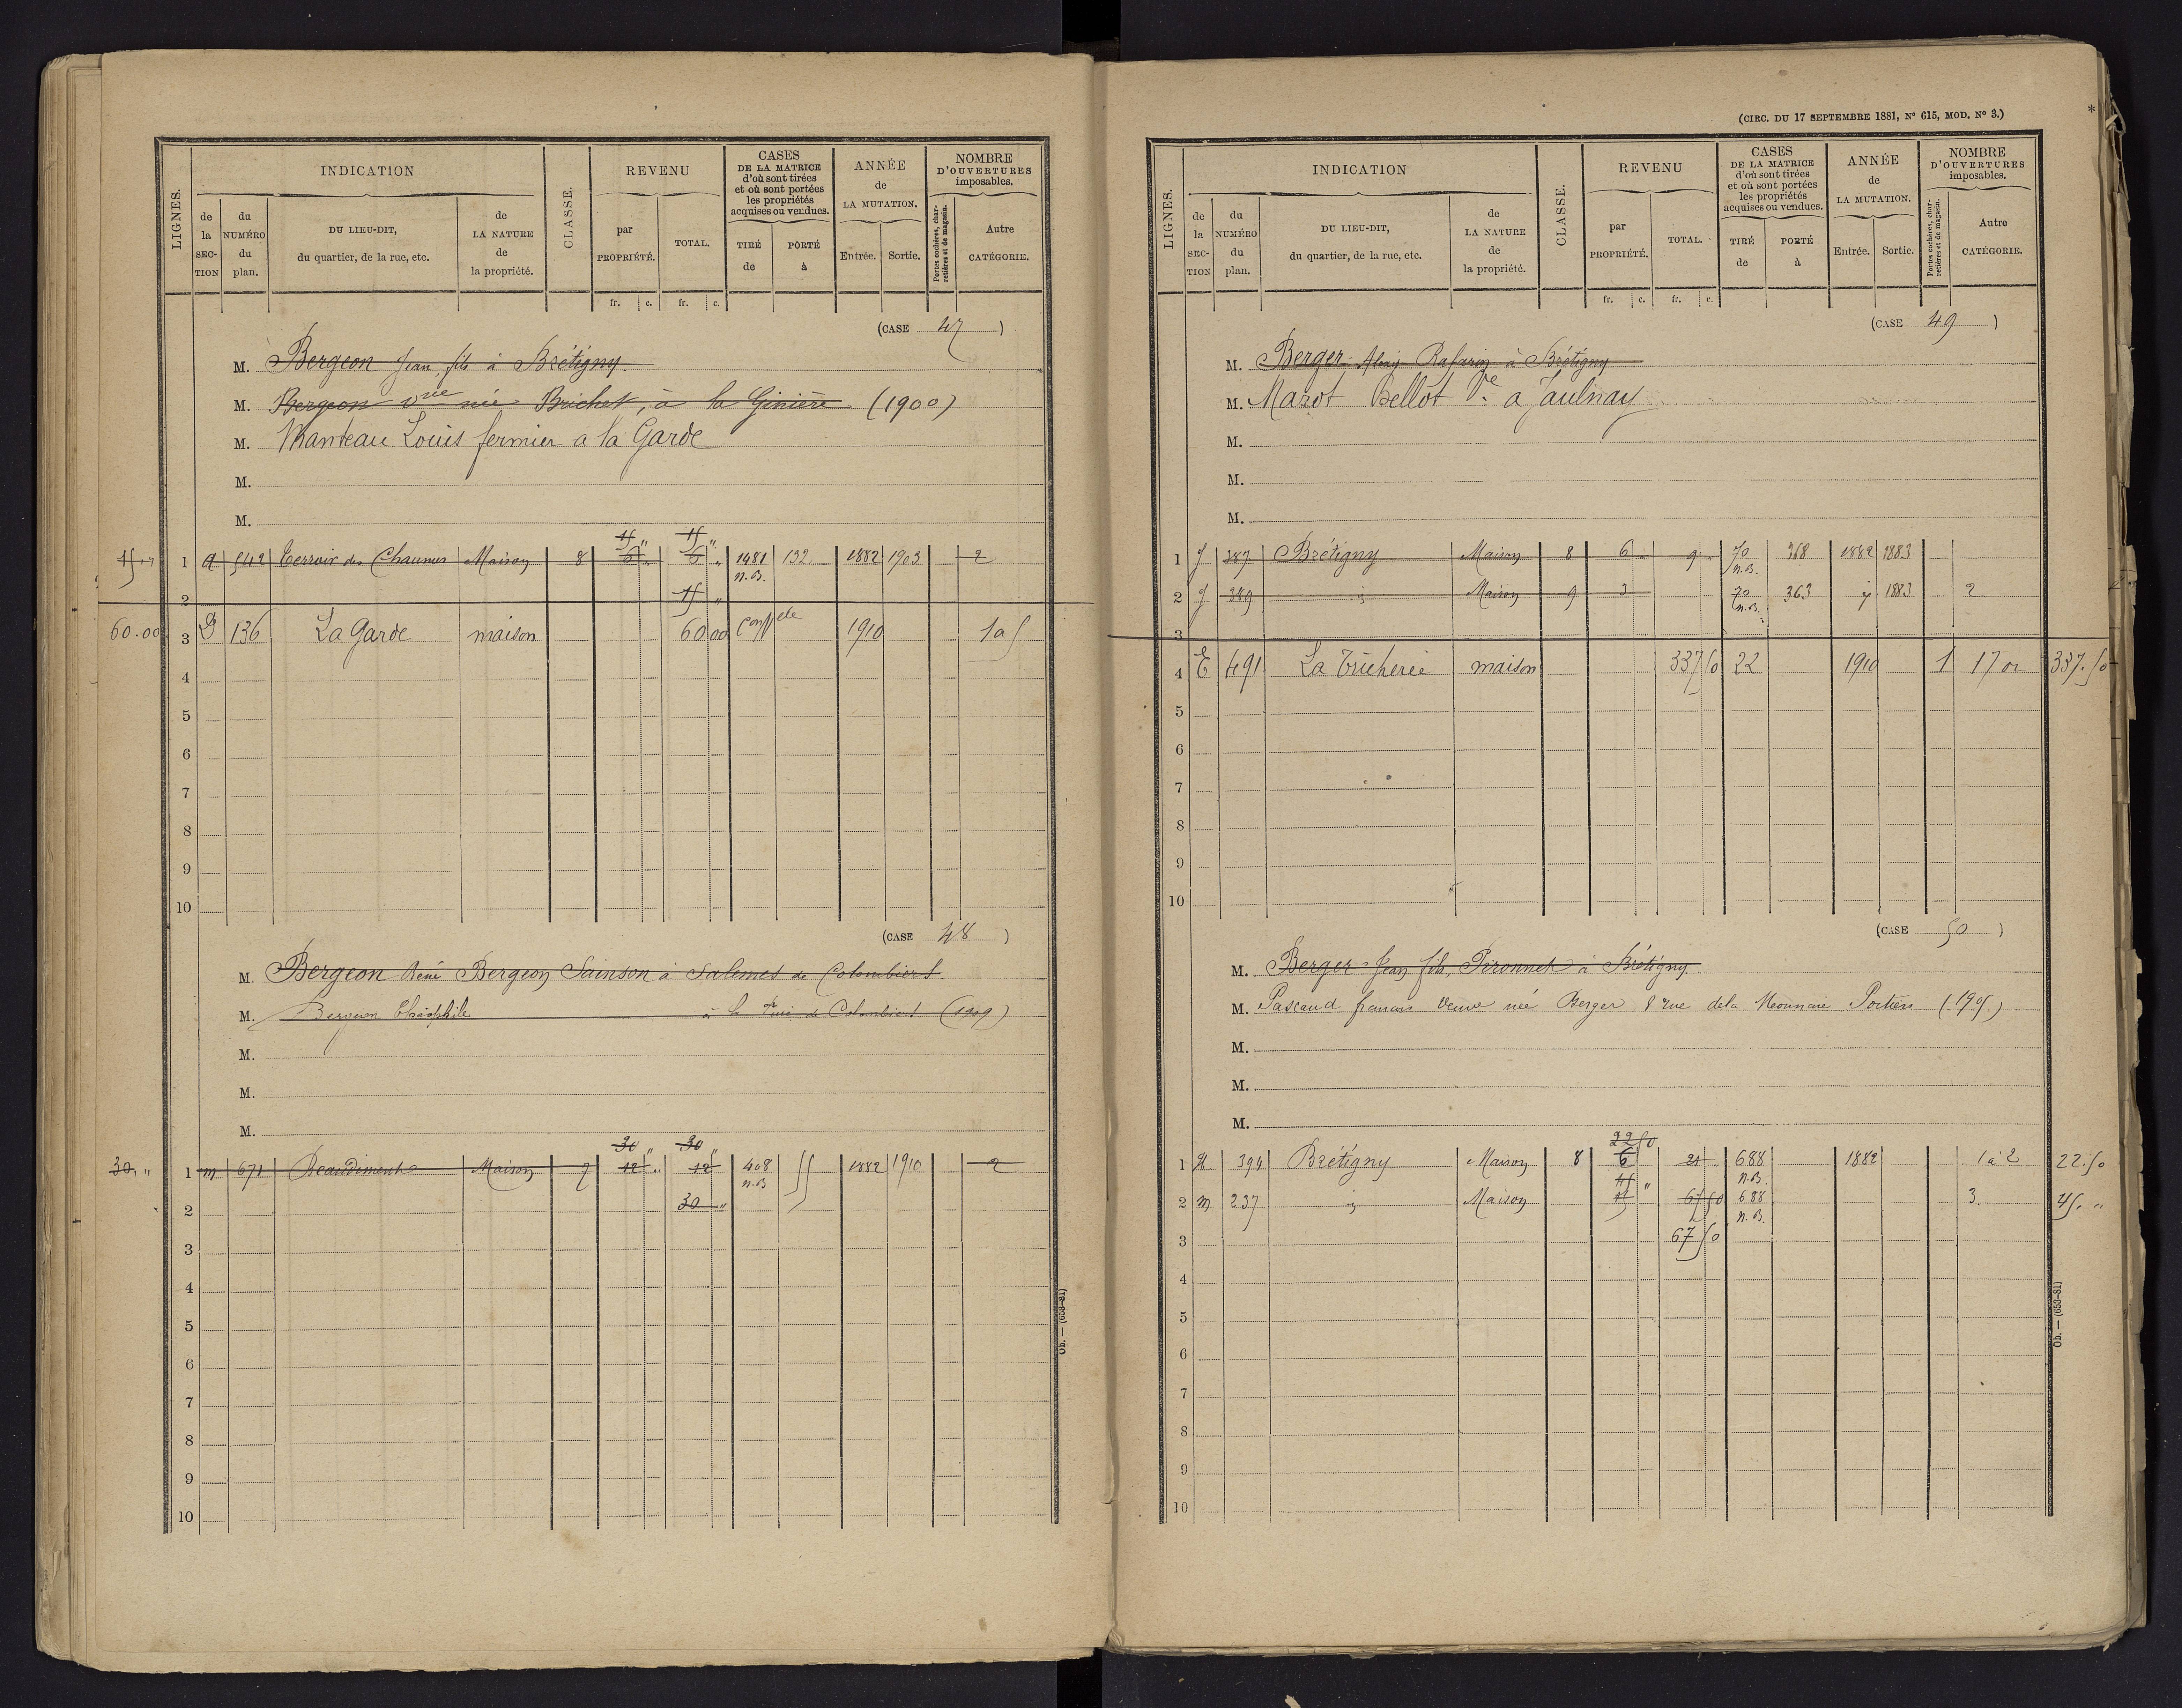 LIGNES.
INDICATION
de la SECTION
du NUMÉRO du plan.
DU LIEU-DIT, du quartier, de la rue, etc.
de LA NATURE de la propriété.
CLASSE.
REVENU
par PROPRIÉTÉ.
TOTAL.
fr. c. fr. c.
CASES DE LA MATRICE d'où sont tirées et où sont portées les propriétés acquises ou vendues.
TIRÉ de
PORTÉ à
ANNÉE de LA MUTATION.
Entrée. Sortie.
NOMBRE D'OUVERTURES imposables.
Portes cochères, charretières et de magasin.
Autre CATÉGORIE.
(CASE 47)
M. Bergeon Jean, fils à Brétigny
M. Bergeon née Brichet, à la Ginière (1900)
M. Manteau Louis fermier a la Garde
M.
M.
45 " 45 "
45 " 1 542 Terroir des Chaumes Maison 8 6 " 6 " 1481 132 1882 1903 2
n. B.
2 45 "
60.00 3 D 136 La Garde maison 60 00 1910 1 a 5
4
5
6
7
8
9
10
(CASE 48)
M. Bergeon René Bergeon Sainson à Salemes de Colombiers
M. Bergeon Théophile à la de Colombiers (1909)
M.
M.
M.
30 " 30 "
30. " 1 m 671 Beaudiment Maison 7 12 " 12 408 55 1882 1910 2
n. B
2 30 "
3
4
5
6
7
8
9
10
Ob. — (653-81)
(CIRC. DU 17 SEPTEMBRE 1881, N° 615, MOD. N° 3.)
*
LIGNES.
INDICATION
de la SECTION
du NUMÉRO du plan.
DU LIEU-DIT, du quartier, de la rue, etc.
de LA NATURE de la propriété.
CLASSE.
REVENU
par PROPRIÉTÉ.
TOTAL.
fr. c. fr. c.
CASES DE LA MATRICE d'où sont tirées et où sont portées les propriétés acquises ou vendues.
TIRÉ de
PORTÉ à
ANNÉE de LA MUTATION.
Entrée. Sortie.
NOMBRE D'OUVERTURES imposables.
Portes cochères, charretières et de magasin.
Autre CATÉGORIE.
(CASE 49)
M. Berger Rafarin à Brétigny
M. Marot Bellot Ve a Jaulnay
M.
M.
M.
1 J 387 Brétigny Maison 8 6 9 70 368 1882 1883
n. B.
2 J 389 Maison 9 3 70 363 1883 2
n. B.
3
4 E 491 La Tricherie maison 337 50 22 1910 1 17 337.50
5
6
7
8
9
10
(CASE 50)
M. Berger Jean fils, Pironnet à Brétigny
M. Pascaud veuve née Berger 8 rue de la Monnaie Poitiers
M.
M.
M.
22 50
1 394 Brétigny Maison 8 6 21 688 1882 1 à 2 22.50
45 " n. B.
2 m 237 Maison 67 50 688 3. 45. "
n. B.
3 67 50
4
5
6
7
8
9
10
Ob. — (653-81)